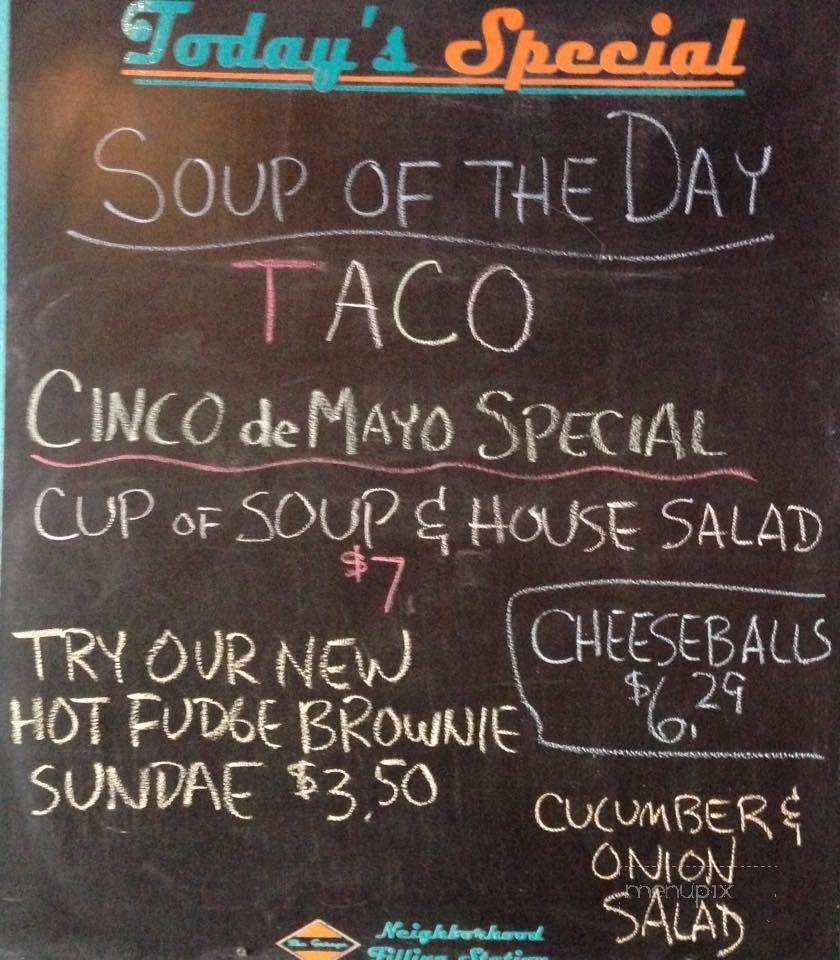 Today's Special
SOUP OF THE DAY
TACO
CINCO de MAYO SPECIAL
CUP OF SOUP & HOUSE SALAD
$7
TRY OUR NEW
HOT FUDGE BROWNIE
SUNDAE $3.50
CHEESEBALLS
$6.29
CUCUMBER &
ONION
SALAD
menupix
The Garage
Neighborhood
Filling Station